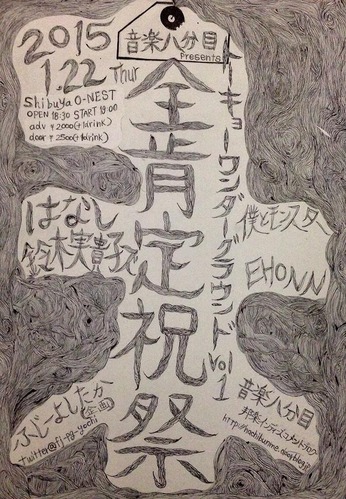 2015
1.22 Thur
Shibuya O-NEST
OPEN 18:30 START 19:00
adv ¥2000(+1drink)
door ¥2500(+1drink)
音楽八分目
presents
トーキョーワンダーグラウンド vol 1
全肯定祝祭
はなし
鈴木実貴子ズ
僕とモンスター
EHONN
ふじーよしたか
企画
音楽八分目